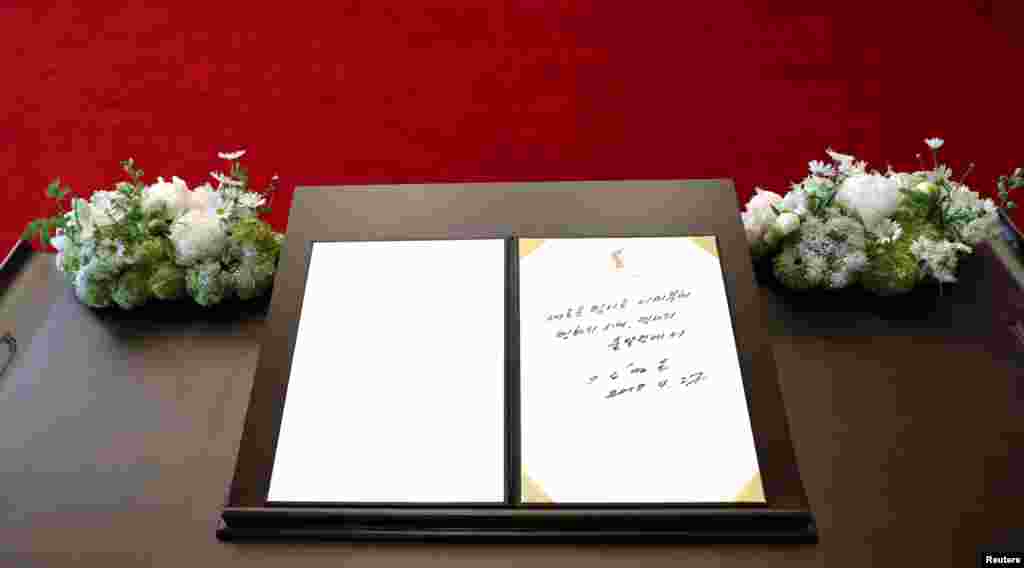 새로운 력사는 이제부터
평화의 시대, 력사의
출발점에서
김정은
2018. 4. 27.
Reuters